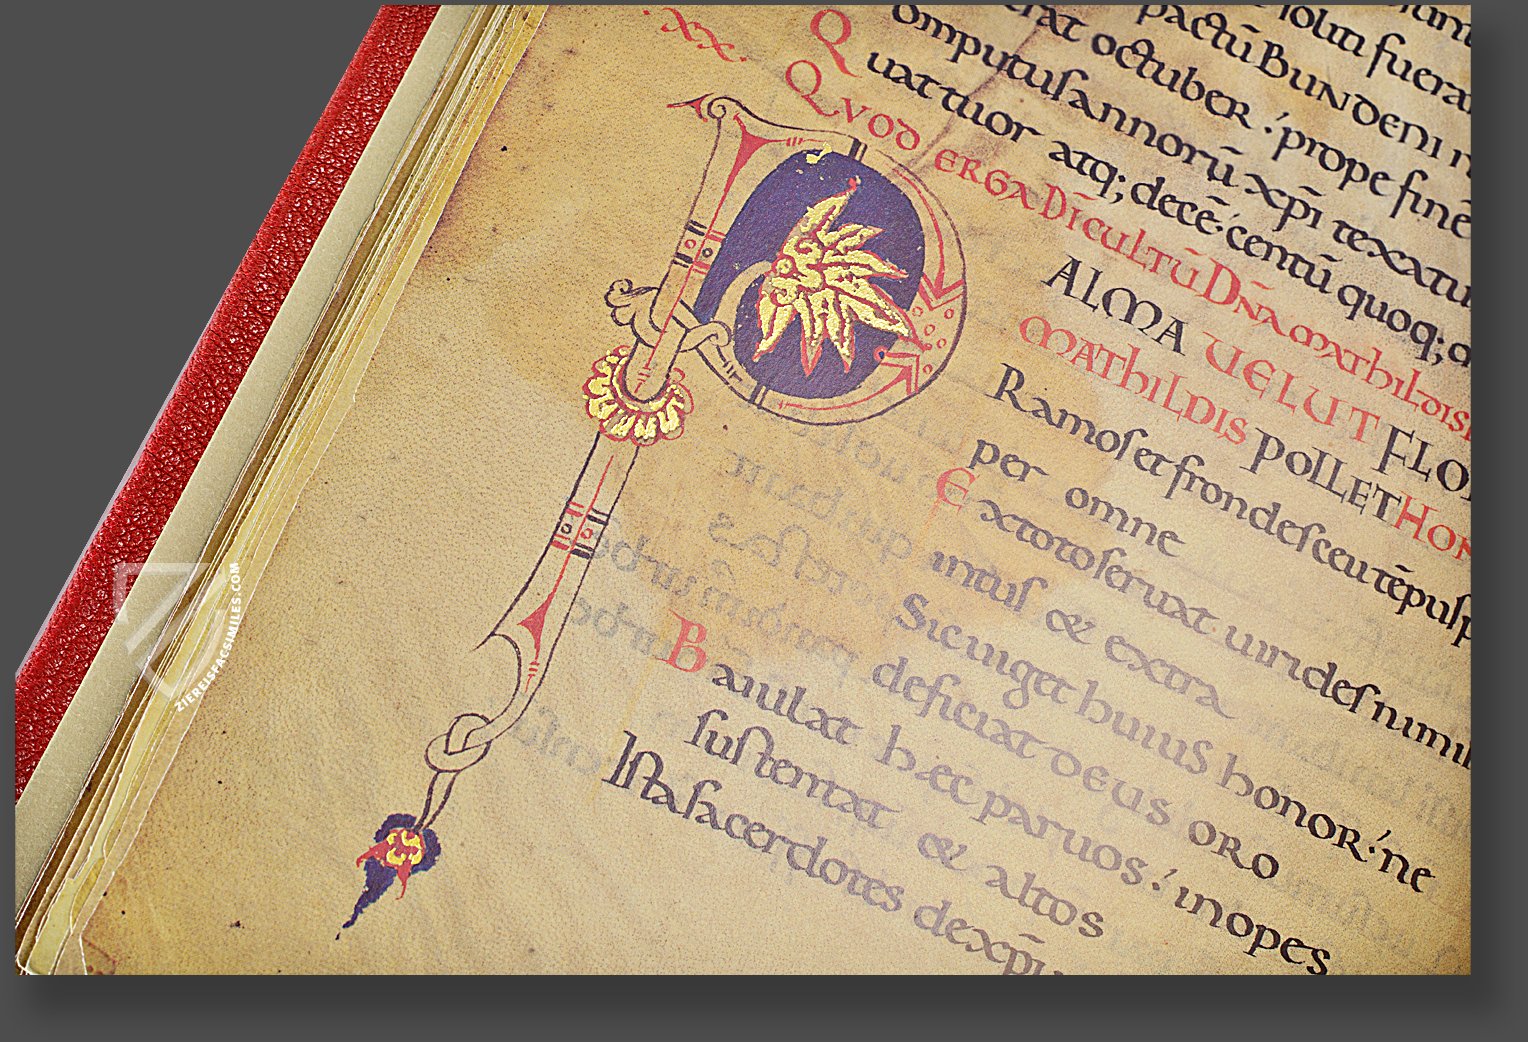 ſoluti fuera
pactū Bundeni n
erat octuber ⁏ prope finē
omputuſ annorū xp̄i texatu
Quattuor atq; decē ⁏ centū quoq; a
·XX· QVOD ERGA DĪ CULTŪ DN̄A MATHILDIS
PALMA UELUT FLO
MATHILDIS POLLET HON
Ramoſ et frondeſ ceu tēpuſ p
per omne
Ex toto ſeruat uirideſ nimi
intuſ & extra
Sic uiget huiuS honOR ⁏ ne
deficiat DEUS ORO
Baiulat hæc paruos ⁏ inopes
ſuſtentat & altos
Iſta ſacerdotes de xp̄i
ZIEREISFACSIMILES.COM